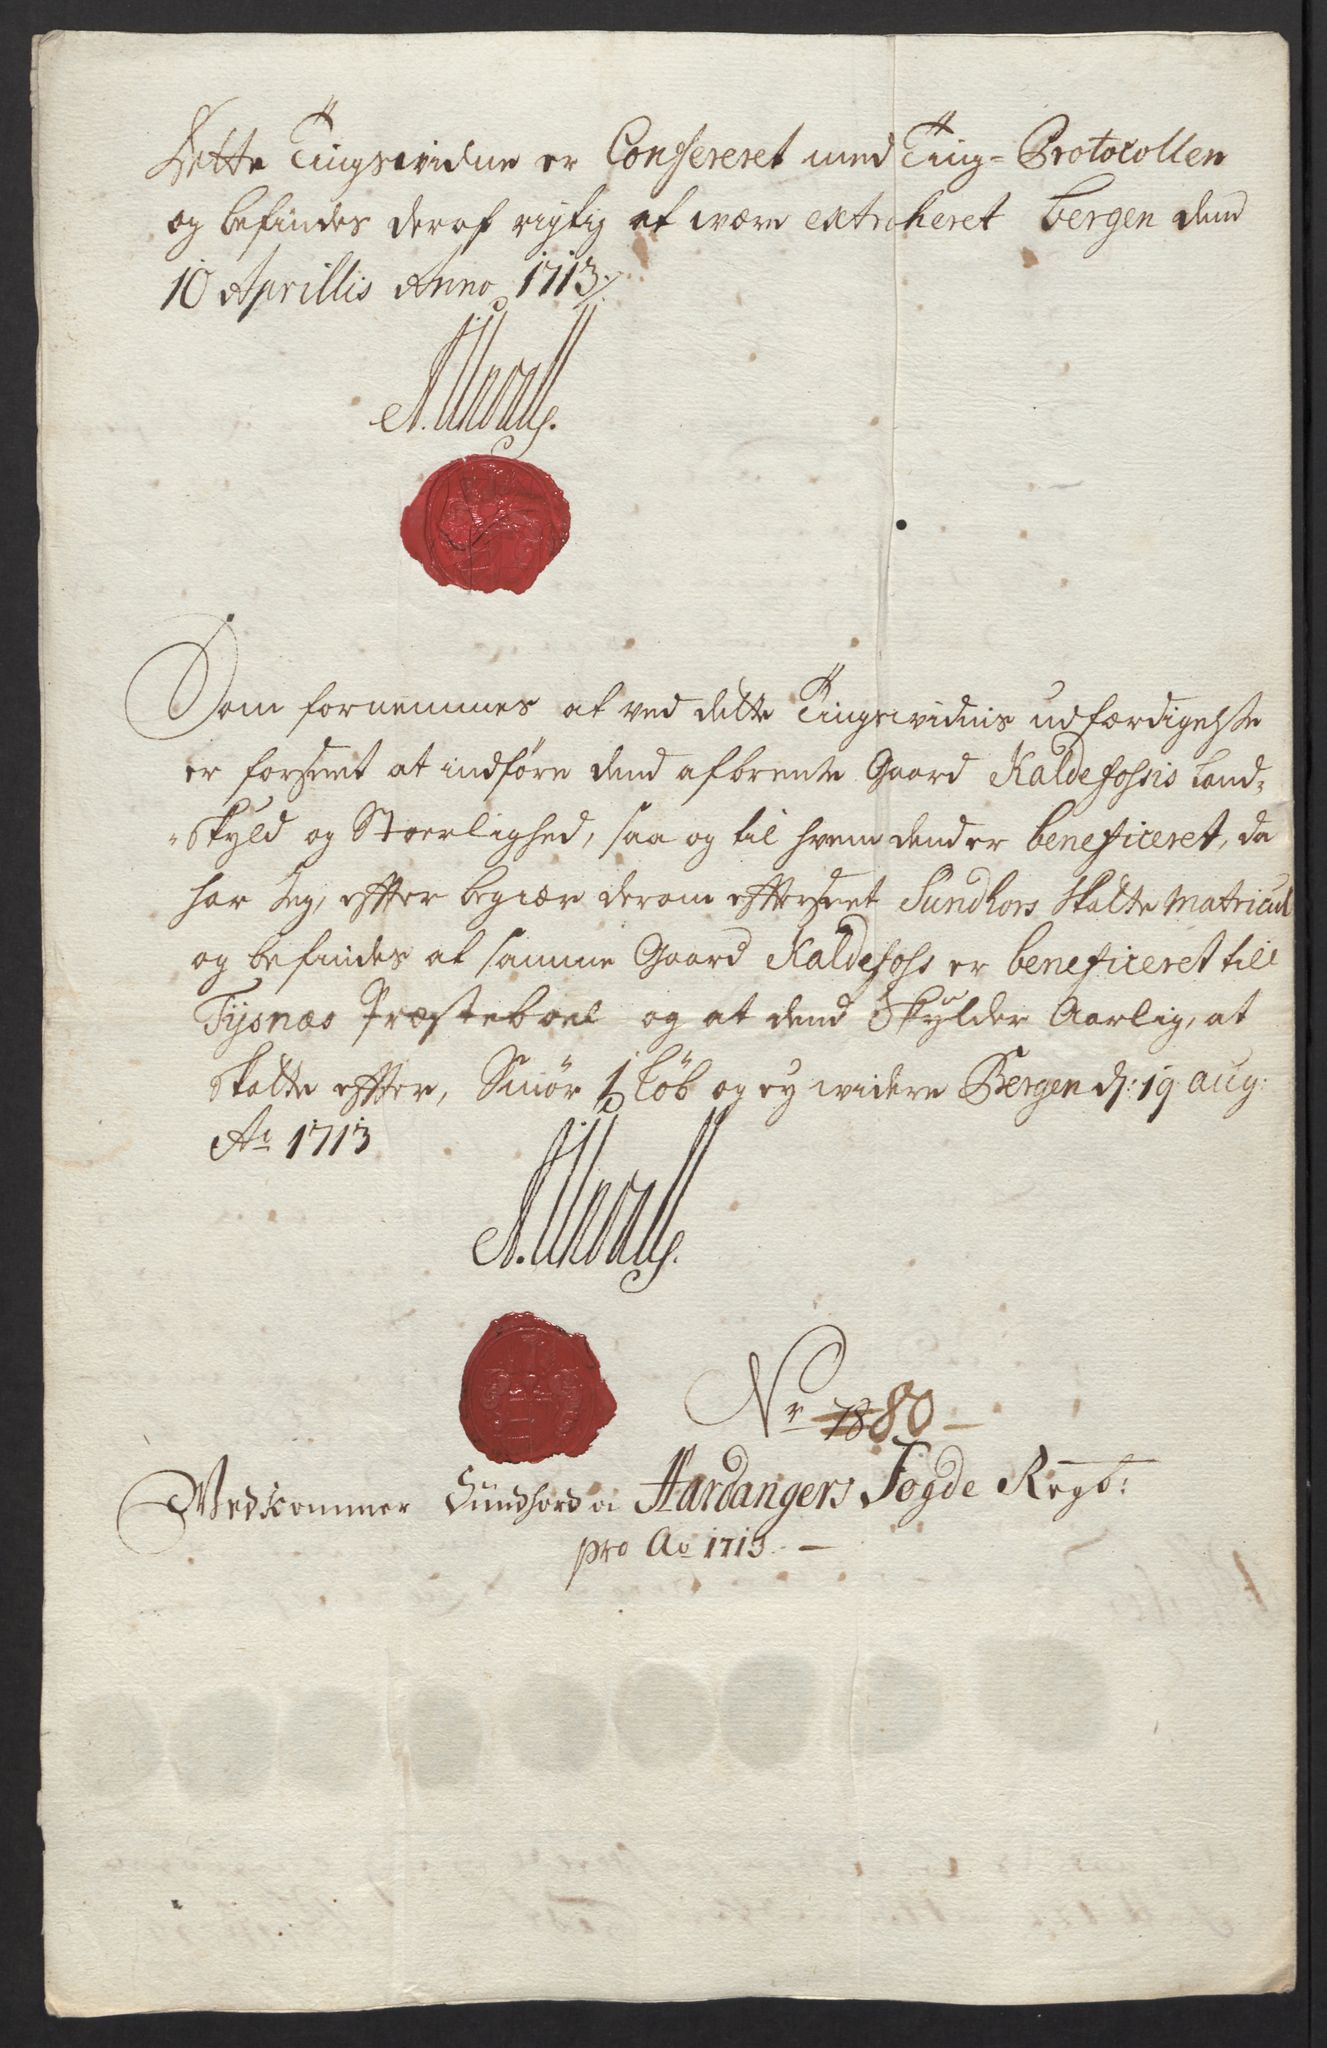 Dette Tingswidne er Confereret med Ting=Protocollen
og befindes deraf rigtig at wære extraheret bergen dend
10 Aprillis Anno 1713
Som fornemmes at ved dette Tingswidnis udfærdigelse
er forseet at indføre dend afbrente Gaard Kaldefossis land-
-skyld og Stoerlighed, saa og til hvem dend er beneficeret, da
har Jeg, effter begiær derom effterseet Sundhors Skatte Matricul
og befindes at samme Gaard Kaldefoss er beneficeret till
Tysnæs Præsteboel og at dend Skylder Aarlig, at
skatte effter, Smør 1 Løb og ey widere Bergen d: 19 aug:
Ao 1713
Nr 78 80
Wedkommer Sundhord og Hardangers Fogde Regb:
pro Ao 1713